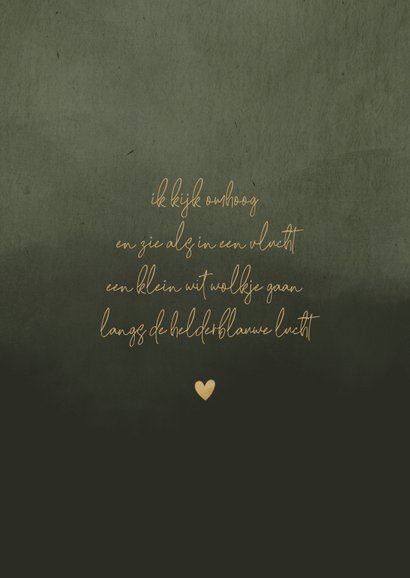 ik kijk omhoog
en zie als in een vlucht
een klein wit wolkje gaan
langs de helderblauwe lucht